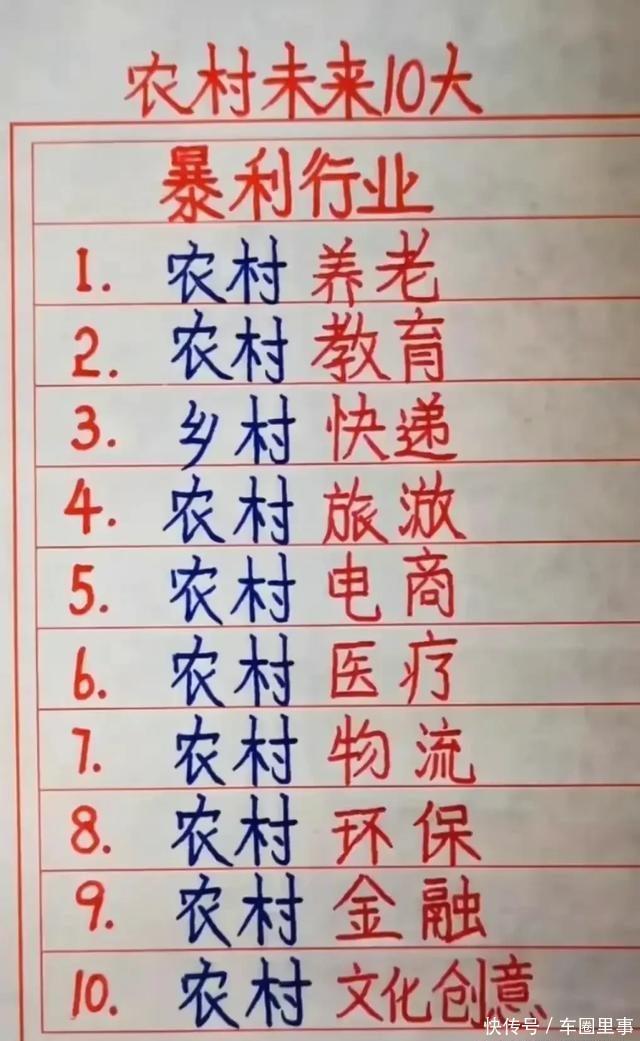 农村未来10大
暴利行业
1. 农村 养老
2. 农村 教育
3. 乡村 快递
4. 农村 旅游
5. 农村 电商
6. 农村 医疗
7. 农村 物流
8. 农村 环保
9. 农村 金融
10. 农村 文化创意
快传号 / 车圈里事